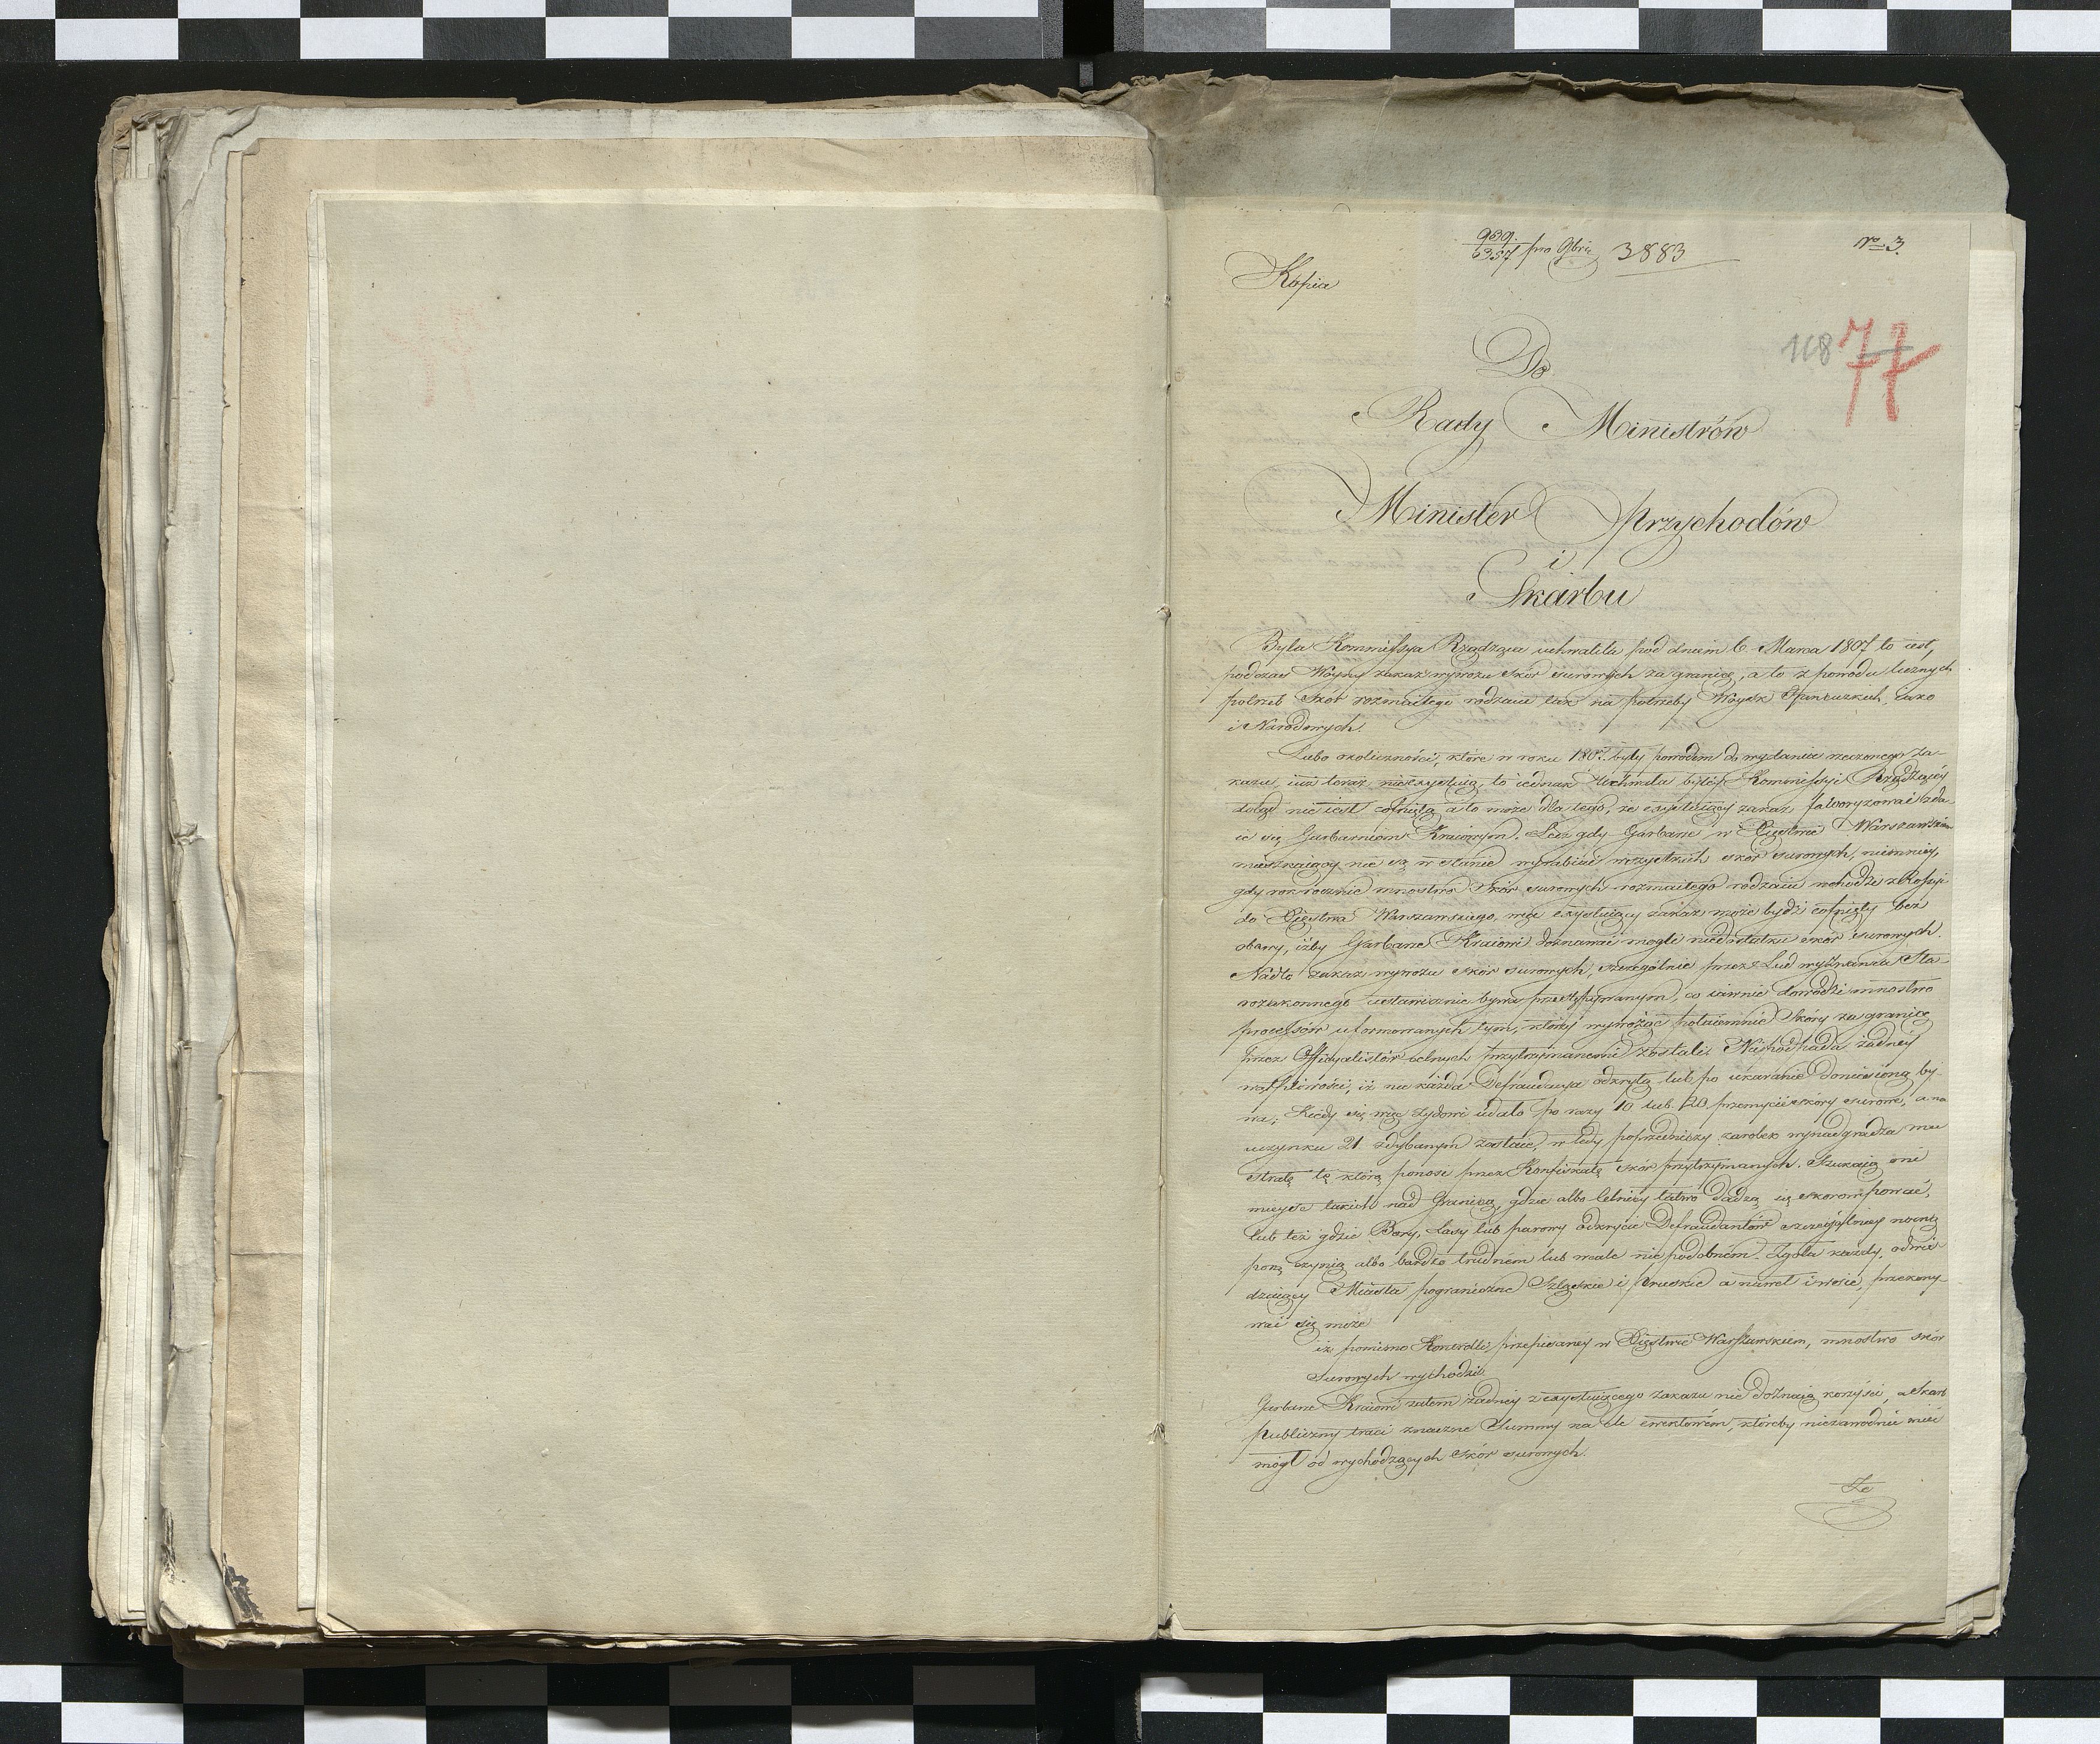 939.
6357 pro 9bris 3883
No 3.
Kopia
168 77
Do
Rady Ministrów
Minister Przychodów
i
Skarbu
Była Kommissya Rządząca uchwaliła pod dniem 6. Marca 1807 to iest,
podczas Woyny zakaz wywozu skór surowych za granicę, a to z powodu licznych
potrzeb Skór rozmaitego rodzaiu tak na potrzeby Woysk Francuzkich, iako
i Narodowych.
Lubo okoliczności, które w roku 1807. były powodem do wydania rzeczonego Za-
kazu, iuż teraz nieexystuią, to iednak Uchwała byłey Kommissyi Rządzącey
dotąd nie iest cofnięta, a to może dla tego, że exystuiący zakaz faworyzować zda-
ie się Garbarniom Kraiowym. Lecz gdy Garbarze w Xięstwie Warszawskim
mieszkaiący nie są w stanie wyrabiać wszystkich skór surowych, niemniey,
gdy rok rocznie mnostwo Skór surowych rozmaitego rodzaiu wchodzi z Rossyi
do Xięstwa Warszawskiego, więc exystuiący zakaz może bydź cofnięty bez
obawy, iżby Garbarze Kraiowi doznawać mogli niedostatku skór surowych.
Nadto zakaz wywozu skór surowych, szczególnie przez Lud wyznania Sta-
rozakonnego ustawicznie bywa przestępywanym, co iawnie dowodzi mnostwo
processów uformowanych tym, którzy wywożąc potaiemnie Skóry za granicę
przez Officyalistów celnych przytrzymanemi zostali. Niepodpada żadney
wątpliwości, iż nie każda Defraudacya odkrytą lub po ukaranie doniesioną by-
wa; Kiedy się więc Żydowi udało po razy 10 lub 20 przemycić skóry surowe, a na
uczynku 21 zdybanym zostaie, w tedy poprzedniczy zarobek wynadgradza mu
stratę tę którą ponosi przez Konfiskatę skór przytrzymanych. Szukaią oni
mieysc takich nad Granicą, gdzie albo Celnicy łatwo dadzą się skorompować,
lub też gdzie Bory, Lasy lub parowy odkrycie Defraudantów szczególniey nocną
porą czynią albo bardzo trudnem lub wcale nie podobnem. Zgoła każdy, odwie-
dzaiący Miasta pograniczne Szląskie i Pruskie a nawet i wsie, przekony-
wać się może
iż pomimo Kontrolli przepisaney w Xięstwie Warszawskiem, mnostwo skór
surowych wychodzi.
Garbarze Kraiowi zatem żadney z exystuiącego zakazu nie doznaią korzyści, a Skarb
Publiczny traci znaczne Summy na cle ewektowém, któreby niezawodnie mieć
mógł od wychodzących skór surowych.
Ze